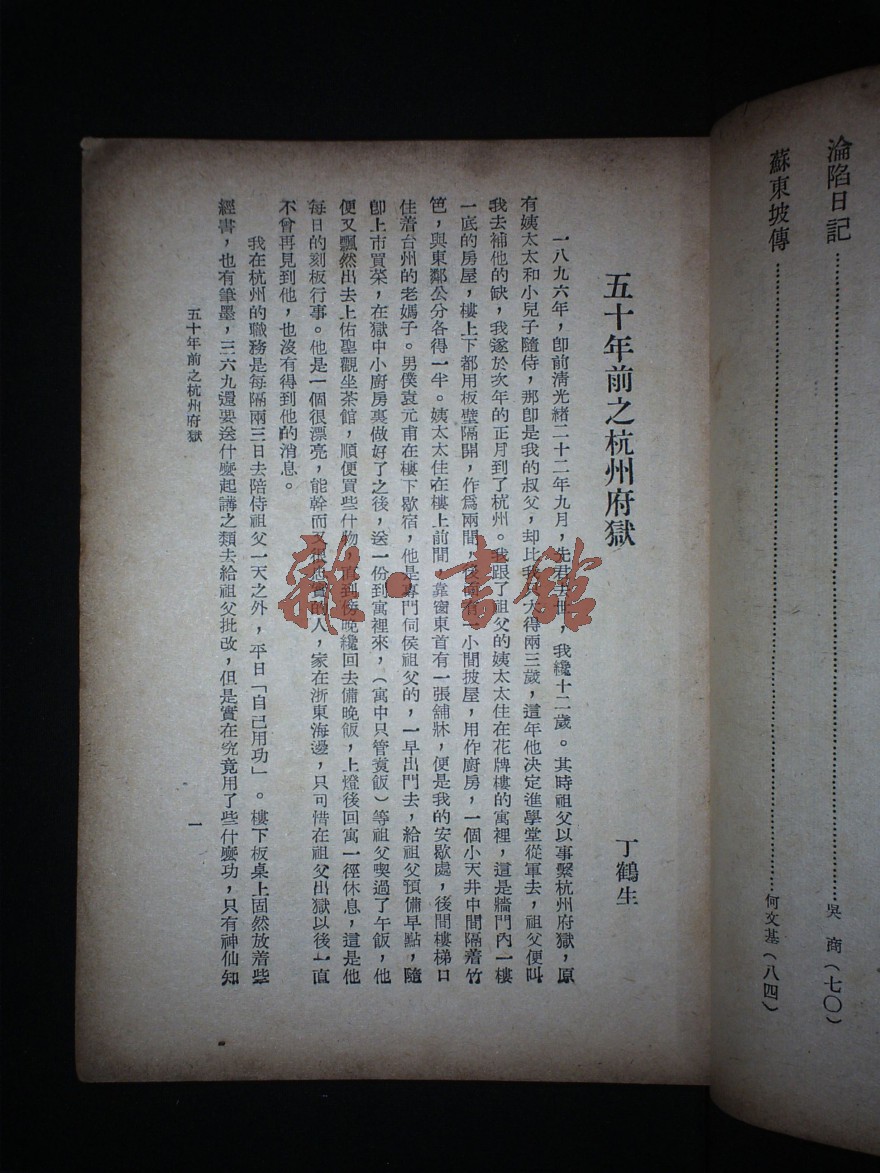 淪陷日記……………………吳 商(七〇)
蘇東坡傳……………………何文基(八四)
五十年前之杭州府獄
丁鶴生
一八九六年，卽前清光緒二十二年九月，先君去世，我纔十二歲。其時祖父以事繫杭州府獄，原
有姨太太和小兒子隨侍，那卽是我的叔父，却比我只大得兩三歲，這年他决定進學堂從軍去，祖父便叫
我去補他的缺，我遂於次年的正月到了杭州。我跟了祖父的姨太太住在花牌樓的寓裡，這是牆門內一樓
一底的房屋，樓上下都用板壁隔開，作爲兩間，後面有一小間披屋，用作廚房，一個小天井中間隔着竹
笆，與東鄰公分各得一半。姨太太住在樓上前間，靠窗東首有一張舖牀，便是我的安歇處，後間樓梯口
住着台州的老媽子。男僕袁元甫在樓下歇宿，他是專門伺侯祖父的，一早出門去，給祖父預備早點，隨
卽上市買菜，在獄中小廚房裏做好了之後，送一份到寓裡來，(寓中只管煑飯)等祖父喫過了午飯，他
便又飄然出去上佑聖觀坐茶館，順便買些什物，直到傍晚纔回去備晚飯，上燈後回寓一徑休息，這是他
每日的刻板行事。他是一個很漂亮，能幹而又很忠實的人，家在浙東海邊，只可惜在祖父出獄以後一直
不曾再見到他，也沒有得到他的消息。
我在杭州的職務是每隔兩三日去陪侍祖父一天之外，平日「自己用功」。樓下板桌上固然放着些
經書，也有筆墨，三六九還要送什麼起講之類去給祖父批改，但是實在究竟用了些什麼功，只有神仙知
五十年前之杭州府獄
一
雜·書館